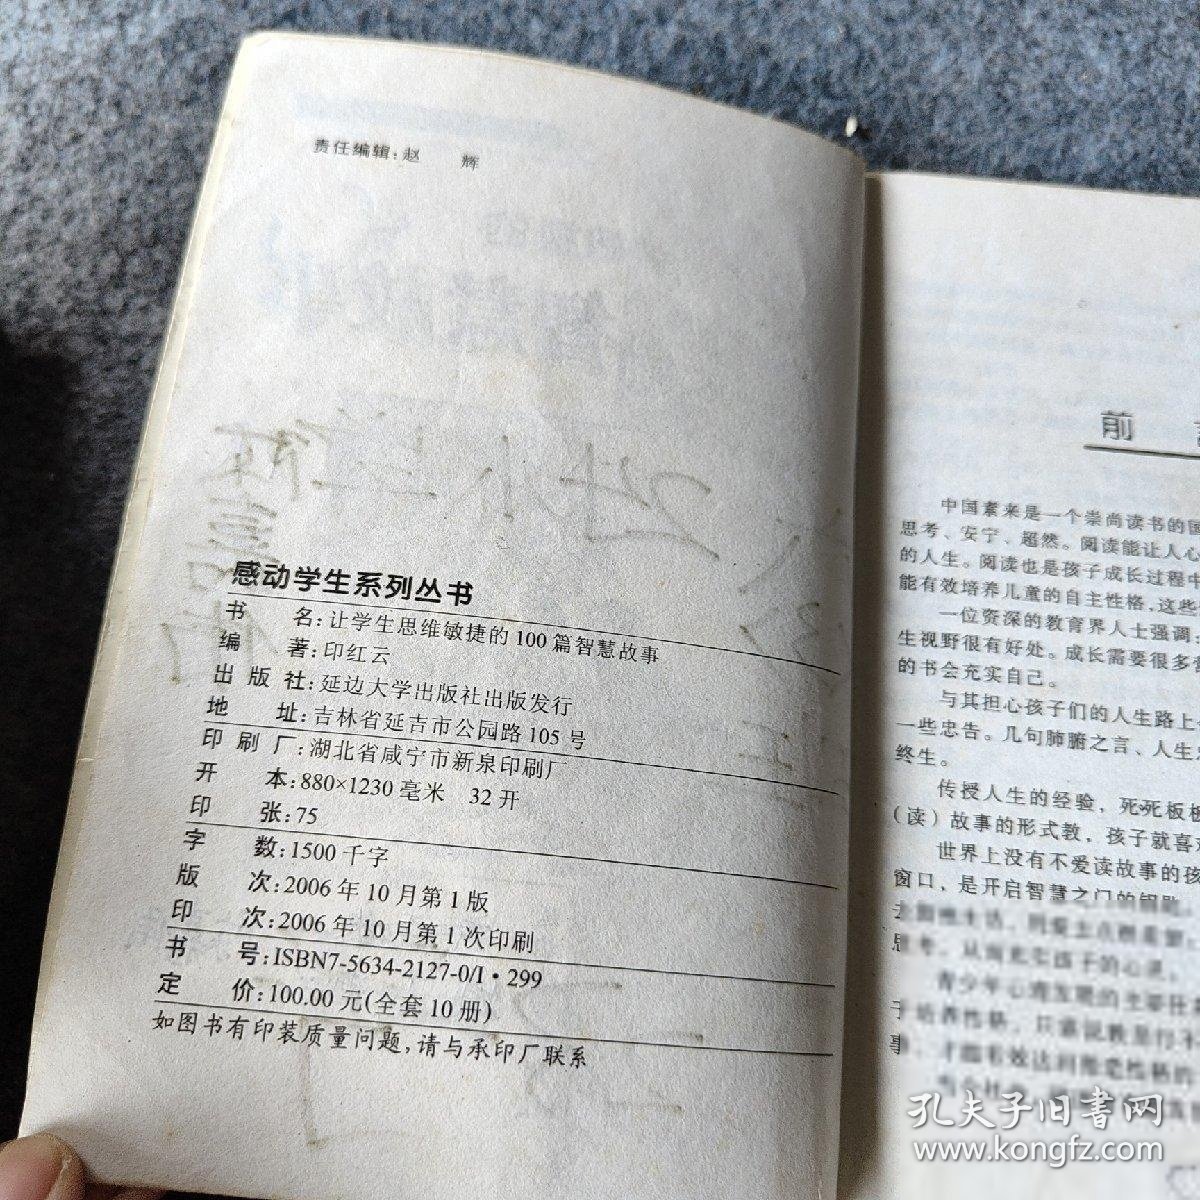 责任编辑：赵　辉
感动学生系列丛书
书　名：让学生思维敏捷的100篇智慧故事
编　著：印红云
出版社：延边大学出版社出版发行
地　址：吉林省延吉市公园路105号
印刷厂：湖北省咸宁市新泉印刷厂
开　本：880×1230毫米　32开
印　张：75
字　数：1500千字
版　次：2006年10月第1版
印　次：2006年10月第1次印刷
书　号：ISBN7-5634-2127-0/I·299
定　价：100.00元（全套10册）
如图书有印装质量问题，请与承印厂联系
前
中国素来是一个崇尚读书的国
思考、安宁、超然。阅读能让人心
的人生。阅读也是孩子成长过程中
能有效培养儿童的自主性格，这些
一位资深的教育界人士强调
生视野很有好处。成长需要很多
的书会充实自己。
与其担心孩子们的人生路上
一些忠告。几句肺腑之言、人生
终生。
传授人生的经验，死死板板
（读）故事的形式教，孩子就喜
世界上没有不爱读故事的孩
窗口，是开启智慧之门的钥
思考，从而充实孩子的心灵。
青少年心理发展的主要任
事
孔夫子旧书网
www.kongfz.com